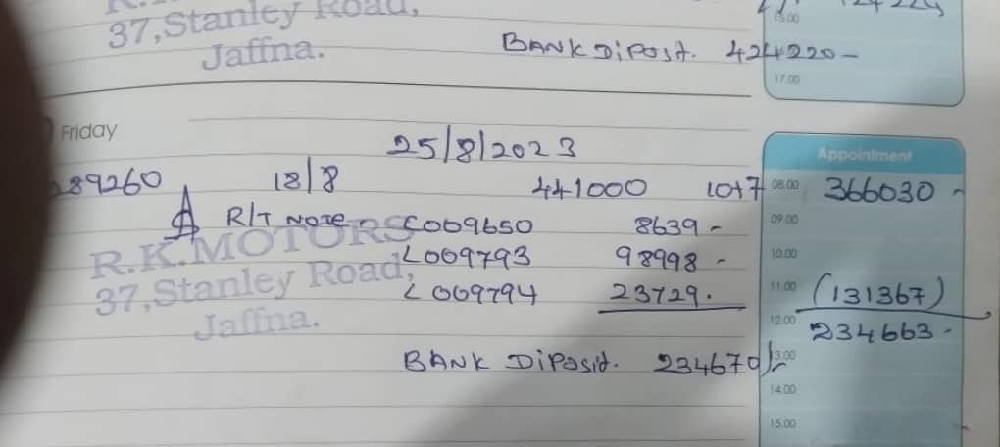 37,Stanley Road,
Jaffna.
15.00
BANK DiPosit. 424220-
17.00
Friday
25/8/2023
Appointment
289260 18/8 441000 10+7 08.00 366030 -
R/T NOTE L009650 8639 - 09.00
R.K.MOTORS
L009793 98998 - 10.00
37,Stanley Road,
L009794 23729. 11.00 (131367)
Jaffna.
12.00 234663 -
BANK DiPosit. 234670/- 13.00
14.00
15.00